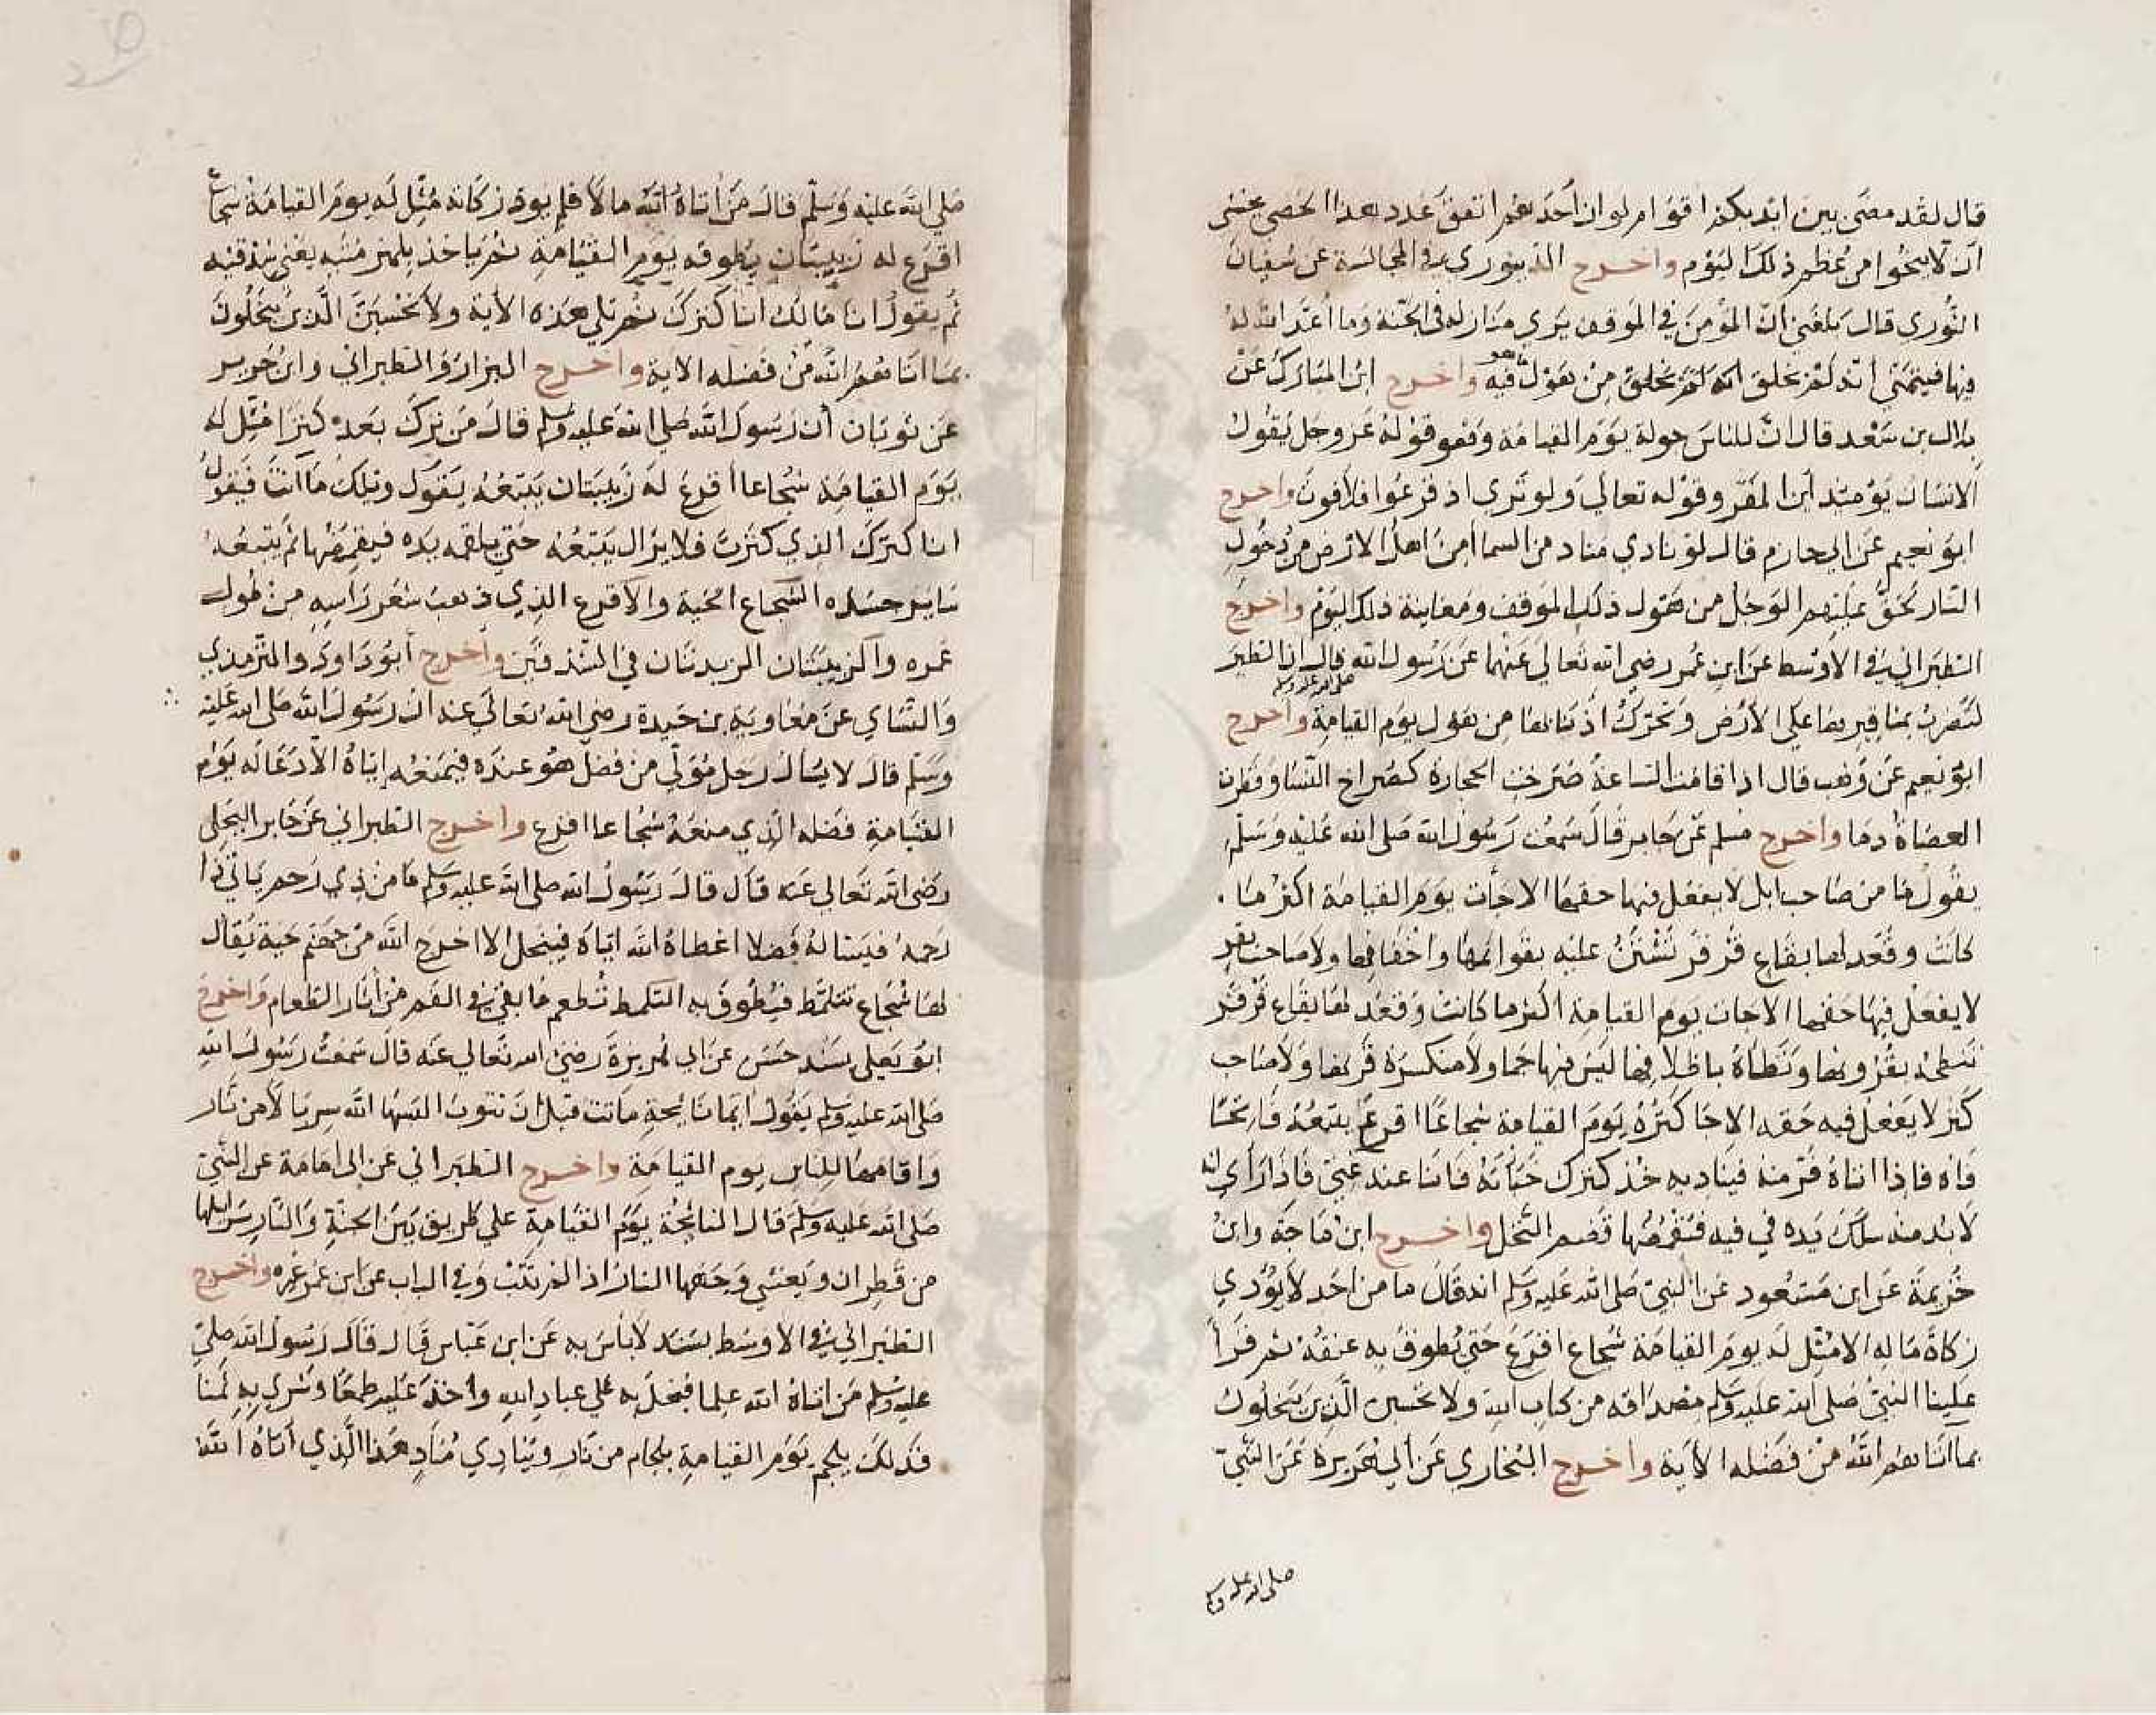 قال لقد مضى بين ايديكم اقوام لو ان أحدهم انفق عدد هذا الحصى يخشى
ان لا ينجوا من عظم ذلك اليوم واخرج الدينوري في المجالسة عن سفيان
الثوري قال بلغني ان المؤمن في الموقف يرى منازله في الجنة وما اعد الله له
فيها فيتمنى أنه لم يخلق من هول ما هو فيه واخرج ابن المبارك عن
بلال بن سعد قال ان للناس جولة يوم القيامة وهو قوله عز وجل يقول
الانسان يومئذ أين المفر وقوله تعالى ولو ترى اذ فزعوا فلا فوت واخرج
ابو نعيم عن ابي حازم قال لو نادي مناد من السما أمن اهل الارض من دخول
النار لحق عليهم الوجل من هول ذلك الموقف ومعاينة ذلك اليوم واخرج
الطبراني في الاوسط عن ابن عمر رضي الله تعالى عنهما عن رسول الله صلى الله عليه وسلم قال ان الطير
لتضرب بمناقيرها على الأرض وتحرك أذنابها من هول يوم القيامة واخرج
ابو نعيم عن وهب قال اذا قامت الساعة صرخت الحجارة كصراخ النسا وقطرت
العضاة دما واخرج مسلم عن جابر قال سمعت رسول الله صلى الله عليه وسلم
يقول ما من صاحب ابل لا يفعل فيها حقها الا جأت يوم القيامة اكثر ما
كانت وقعد لها بقاع قرقر تستن عليه بقوائمها واخفافها ولا صاحب بقر
لا يفعل فيها حقها الا جات يوم القيامة اكثر ما كانت وقعد لها بقاع قرقر
تنطحه بقرونها وتطأه باظلافها ليس فيها جما ولا منكسرة قرنها ولا صاحب
كنز لا يفعل فيه حقه الا جا كنزه يوم القيامة شجاعا اقرع يتبعه فاتحا
فاه فاذا اتاه فر منه فيناديه خذ كنزك خبأته فانا عنه غني فاذا رأى أنه
لا بد منه سلك يده في فيه فيقضمها قضم الفحل واخرج ابن ماجة وابن
خزيمة عن ابن مسعود عن النبي صلى الله عليه وسلم انه قال ما من احد لا يؤدي
زكاة ماله الا مثل له يوم القيامة شجاع اقرع حتى يطوق به عنقه ثم قرأ
علينا النبي صلى الله عليه وسلم مصداقه من كتاب الله ولا تحسبن الذين يبخلون
بما اتاهم الله من فضله الأية واخرج البخاري عن أبي هريرة عن النبي
صلى الله عليه وسلم
صلى الله عليه وسلم قال من أتاه الله مالا فلم يود زكاته مثل له يوم القيامة شجاعا
اقرع له زبيبتان يطوقه يوم القيامة ثم ياخذ بلهزمتيه يعني شدقيه
ثم يقول انا مالك انا كنزك ثم تلى هذه الأية ولا تحسبن الذين يبخلون
بما اتاهم الله من فضله الاية واخرج البزار والطبراني وابن جرير
عن ثوبان أن رسول الله صلى الله عليه وسلم قال من ترك بعده كنزا مثل له
يوم القيامة شجاعا أقرع له زبيبتان يتبعه يقول ويلك ما انت فيقول
انا كنزك الذي كنزت فلا يزال يتبعه حتى يلقمه يده فيقضمها ثم يتبعه
سايير جسده الشجاع الحية والاقرع الذي ذهب شعر رأسه من طول
عمره والزبيبتان الزبدتان في الشدقين واخرج أبو داود والترمذي
والنساي عن معاوية بن حيدة رضي الله تعالى عنه ان رسول الله صلى الله عليه
وسلم قال لا يسال رجل مولى من فضل هو عنده فيمنعه إياه الا دعا له يوم
القيامة فضله الذي منعه شجاعا اقرع واخرج الطبراني عن جابر البجلي
رضي الله تعالى عنه قال قال رسول الله صلى الله عليه وسلم ما من ذي رحم ياتي ذا
رحمه فيساله فضلا اعطاه الله اياه فيبخل الا اخرج الله من جهنم حية يقال
لها شجاع تتلمظ فيطوق به التلمظ تطعم ما بقي في الفم من أثار الطعام واخرج
ابو يعلى بسند حسن عن ابي هريرة رضي الله تعالى عنه قال سمعت رسول الله
صلى الله عليه وسلم يقول ايما نايحة ماتت قبل أن تتوب البسها الله سربالا من نار
واقامها للناس يوم القيامة واخرج الطبراني عن ابي امامة عن النبي
صلى الله عليه وسلم قال النايحة يوم القيامة على طريق بين الجنة والنار سرابيلها
من قطران ويغشي وجهها النار اذا لم تتب وفي الباب عن ابن عمر وغيره واخرج
الطبراني في الاوسط بسند لا بأس به عن ابن عباس قال قال رسول الله صلى
عليه وسلم من اتاه الله علما فبخل به على عباد الله واخذ عليه طمعا وشرى به ثمنا
فذلك يلجم يوم القيامة بلجام من نار وينادي مناد هذا الذي أتاه الله